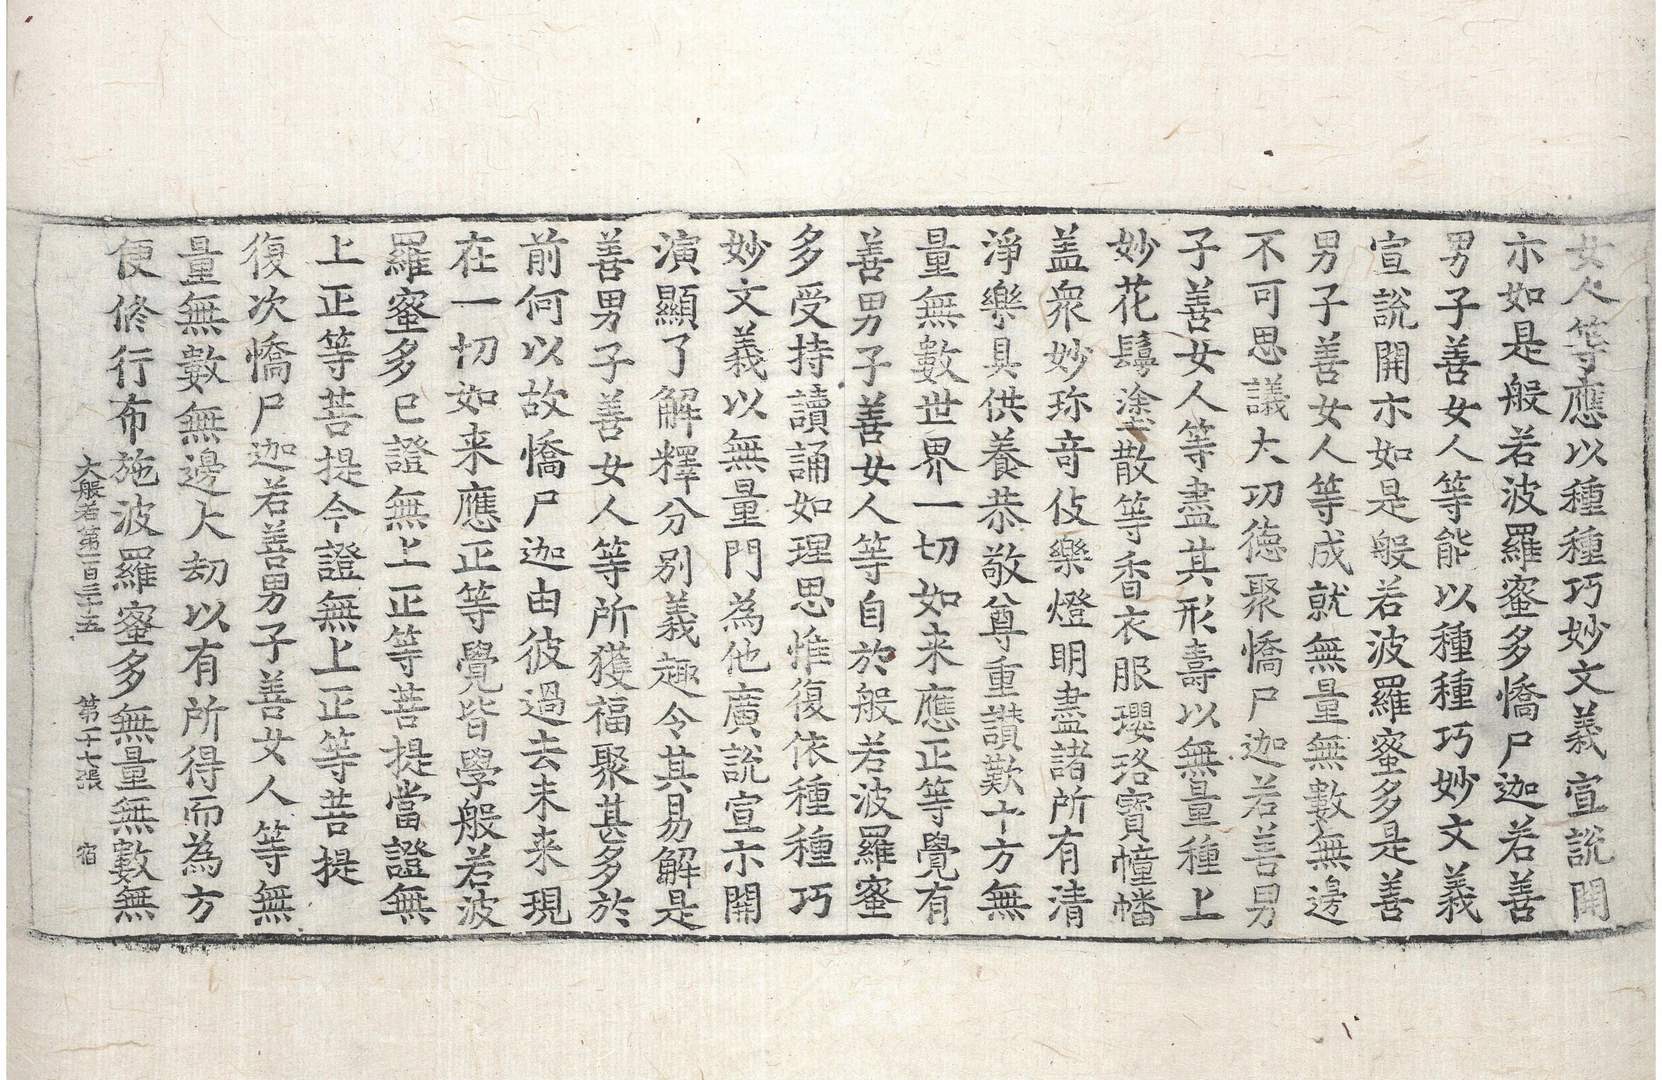 女人等應以種種巧妙文義宣說開
示如是般若波羅蜜多憍尸迦若善
男子善女人等能以種種巧妙文義
宣說開示如是般若波羅蜜多是善
男子善女人等成就無量無數無邊
不可思議大功德聚憍尸迦若善男
子善女人等盡其形壽以無量種上
妙花鬘塗散等香衣服瓔珞寶幢幡
盖衆妙珎竒伎樂燈明盡諸所有清
淨樂具供養恭敬尊重讃歎十方無
量無數世界一切如来應正等覺有
善男子善女人等自於般若波羅蜜
多受持讀誦如理思惟復依種種巧
妙文義以無量門為他廣說宣示開
演顯了解釋分別義趣令其易解是
善男子善女人等所獲福聚甚多於
前何以故憍尸迦由彼過去未来現
在一切如来應正等覺皆學般若波
羅蜜多已證無上正等菩提當證無
上正等菩提今證無上正等菩提
復次憍尸迦若善男子善女人等無
量無數無邊大劫以有所得而為方
便修行布施波羅蜜多無量無數無
大般若第一百三十五 第二十七張 宿